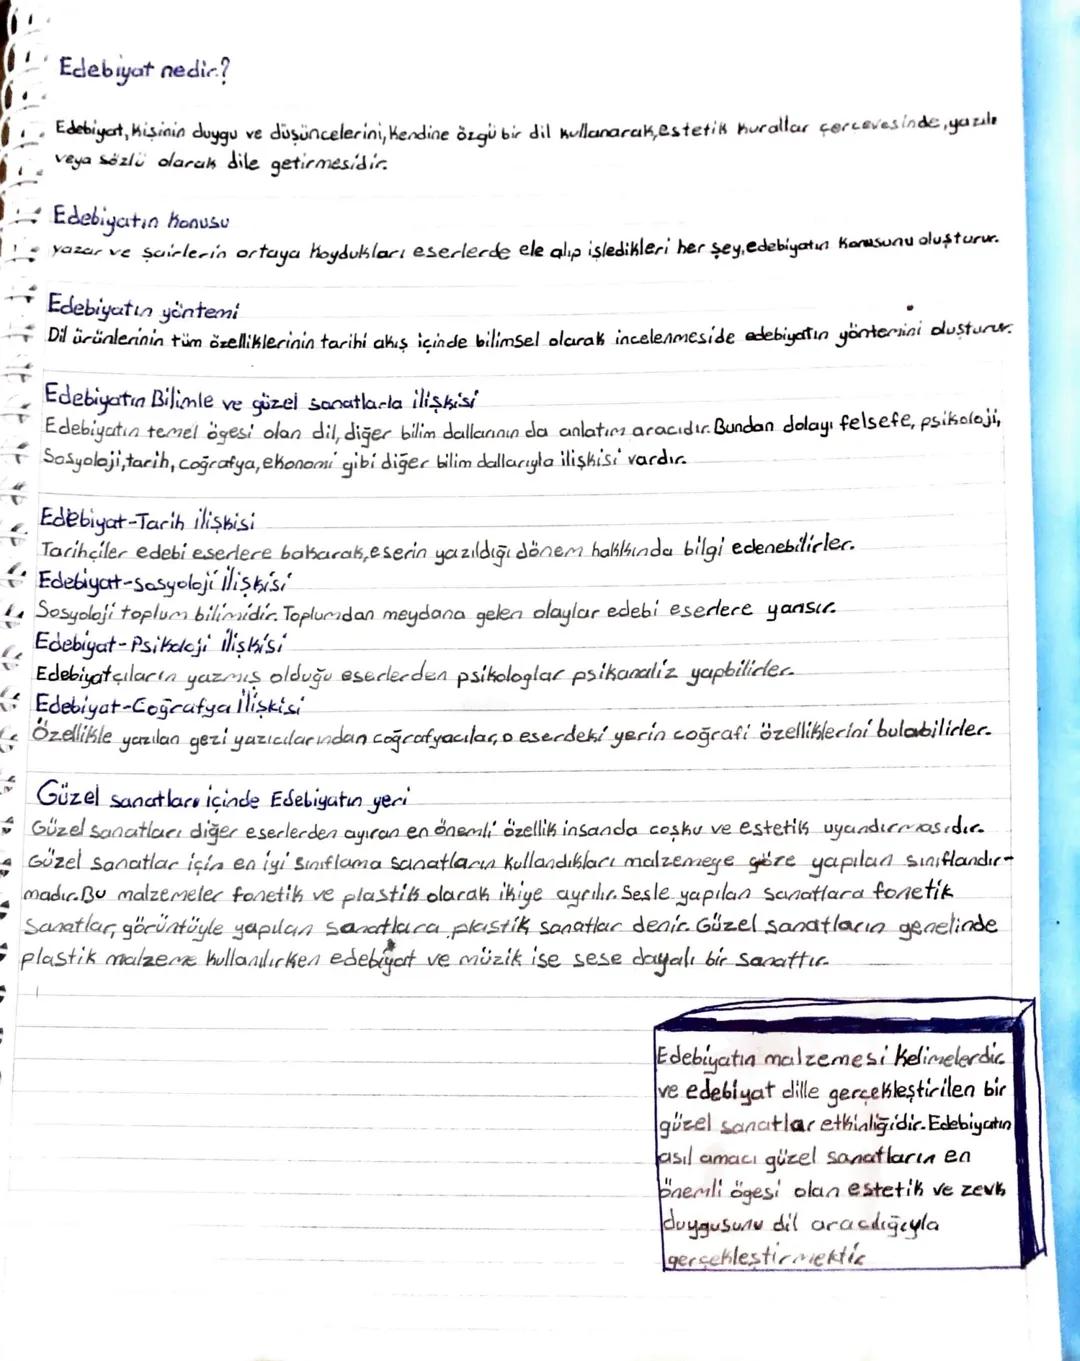 Edebiyat nedir?
Edebiyat, kişinin duygu ve düşüncelerini, kendine özgü bir dil kullanarak, estetik kurallar çerçevesinde, yazılı
veya sözlü olarak dile getirmesidir.
Edebiyatın konusu
yazar ve şairlerin ortaya koydukları eserlerde ele alıp işledikleri her şey, edebiyatın konusunu oluşturur.
Edebiyatın yöntemi
Dil ürünlerinin tüm özelliklerinin tarihi akış içinde bilimsel olarak incelenmeside edebiyatın yöntemini oluşturur.
Edebiyatın Bilimle ve güzel sanatlarla ilişkisi
Edebiyatın temel ögesi olan dil, diğer bilim dallarının da anlatım aracıdır. Bundan dolayı felsefe, psikoloji,
Sosyoloji, tarih, coğrafya, ekonomi gibi diğer bilim dallarıyla ilişkisi vardır.
Edebiyat-Tarih ilişkisi
Tarihçiler edebi eserlere bakarak, eserin yazıldığı dönem hakkında bilgi edenebilirler.
Edebiyat-sosyoloji İlişkisi
Sosyoloji toplum bilimidir. Toplumdan meydana gelen olaylar edebi eserlere yansır.
Edebiyat-Psikoloji ilişkisi
Edebiyatçıların yazmış olduğu eserlerden psikologlar psikanaliz yapbilirler.
Edebiyat-Coğrafya İlişkisi
Özellikle yazılan gezi yazıcılarından coğrafyacılar, o eserdeki yerin coğrafi özelliklerini bulabilirler.
Güzel sanatları içinde Edebiyatın yeri
Güzel sanatları diğer eserlerden ayıran en önemli özellik insanda coşku ve estetik uyandırmasıdır.
Güzel sanatlar için en iyi sınıflama sanatların kullandıkları malzemeye göre yapılan sınıflandır-
madır. Bu malzemeler fonetik ve plastik olarak ikiye ayrılır. Sesle yapılan sanatlara fonetik
Sanatlar, görüntüyle yapılan sanatlara plastik sanatlar denir. Güzel sanatların genelinde
plastik malzeme kullanılırken edebiyat ve müzik ise sese dayalı bir sanattır.
Edebiyatın malzemesi kelimelerdir.
ve edebiyat dille gerçekleştirilen bir
güzel sanatlar etkinliğidir. Edebiyatın
asıl amacı güzel sanatların en
önemli ögesi olan estetik ve zevk
duygusunu dil aracılığıyla
gerçekleştirmektir